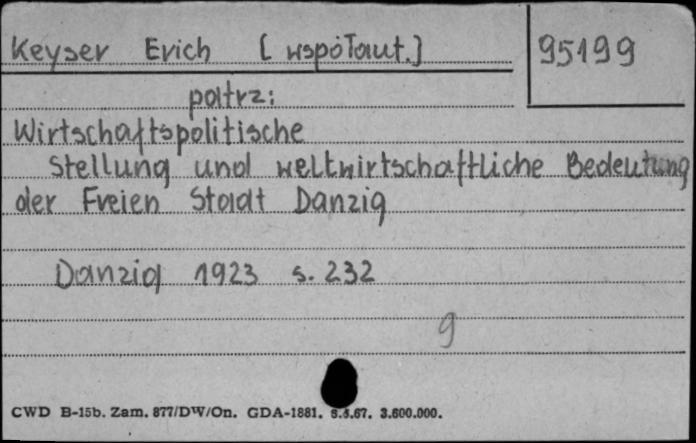 Keyser Erich [współaut.]
95199
patrz:
Wirtschaftspolitische
Stellung und weltwirtschaftliche Bedeutung
der Freien Stadt Danzig
Danzig 1923 s. 232
g
CWD B-15b. Zam. 877/DW/On. GDA-1881. 8.5.67. 3.600.000.